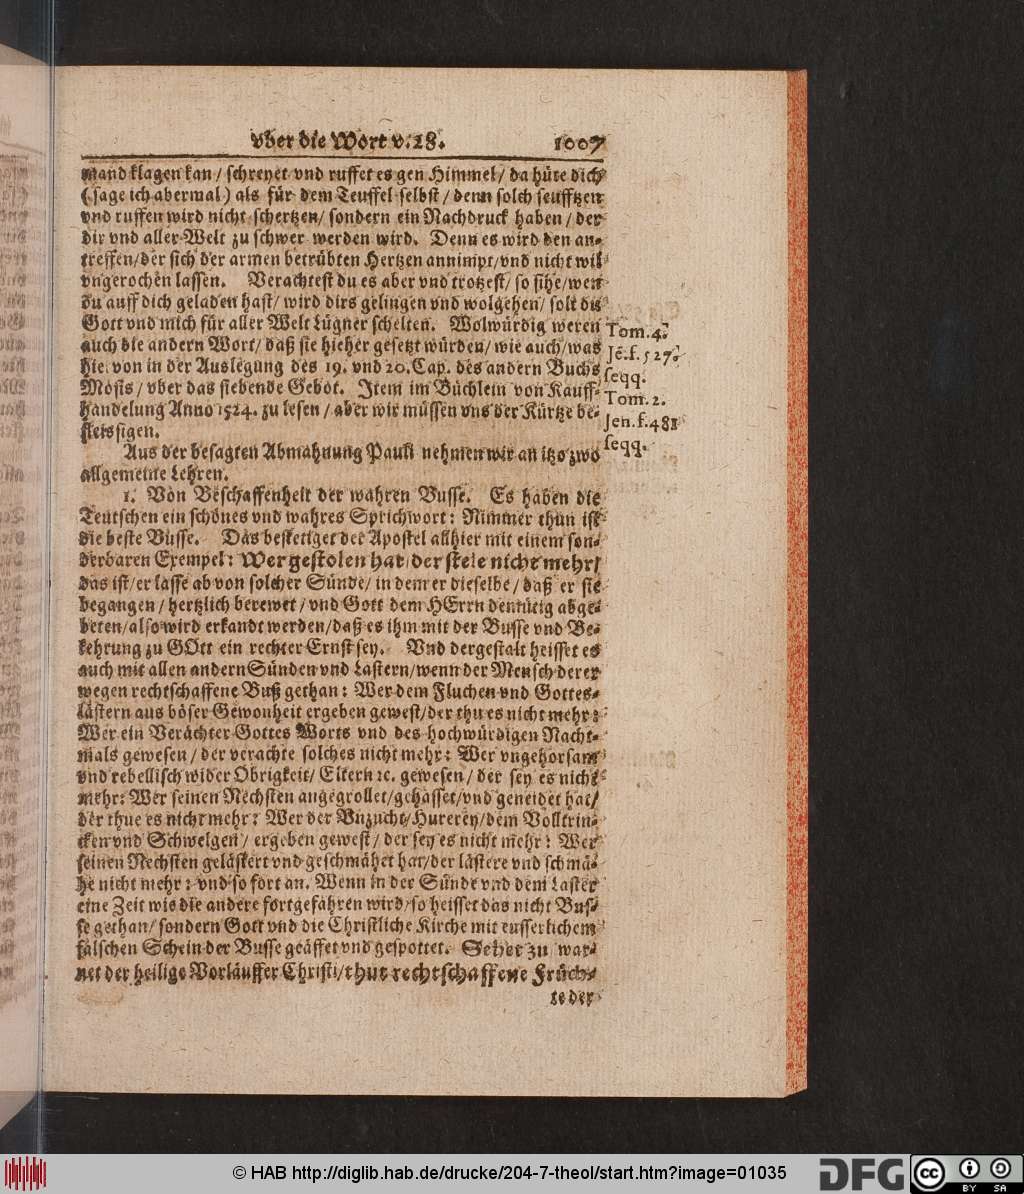 vber die Wort v.28. 1007
mand klagen kan / schreyet vnd ruffet es gen Himmel / da hüte dich
( sage ich abermal ) als für dem Teuffel selbst / denn solch seufftzen
vnd ruffen wird nicht schertzen / sondern ein Nachdruck haben / der
dir vnd aller Welt zu schwer werden wird. Denn es wird den an-
treffen / der sich der armen betrübten Hertzen annimpt / vnd nicht wil
vngerochen lassen. Verachtest du es aber vnd trotzest / so sihe / wen
du auff dich geladen hast / wird dirs gelingen vnd wolgehen / solt du
Gott vnd mich für aller Welt Lügner schelten. Wolwürdig weren
auch die andern Wort / daß sie hieher gesetzt würden / wie auch / was
hievon in der Auslegung des 19. vnd 20. Cap. des andern Buchs
Mosis / vber das siebende Gebot. Item im Büchlein von Kauff-
handelung Anno 1524. zu lesen / aber wir müssen vns der Kürtze be-
fleissigen.
Tom. 4.
Jē. f. 527.
seqq.
Tom. 2.
Jen. f. 481
seqq.
Aus der besagten Abmahnung Pauli nehmen wir an itzo zwo
allgemeine Lehren.
1. Von Beschaffenheit der wahren Busse. Es haben die
Teutschen ein schönes vnd wahres Sprichwort: Nimmer thun ist
die beste Busse. Das bestetiget der Apostel allhier mit einem son-
derbaren Exempel: Wer gestolen hat / der stele nicht mehr /
das ist / er lasse ab von solcher Sünde / in dem er dieselbe / daß er sie
begangen / hertzlich berewet / vnd Gott dem HErrn demütig abge-
beten / also wird erkandt werden / daß es ihm mit der Busse vnd Be-
kehrung zu GOtt ein rechter Ernst sey. Vnd dergestalt heisset es
auch mit allen andern Sünden vnd Lastern / wenn der Mensch derer
wegen rechtschaffene Buß gethan: Wer dem Fluchen vnd Gottes-
lästern aus böser Gewonheit ergeben gewest / der thu es nicht mehr:
Wer ein Verächter Gottes Worts vnd des hochwürdigen Nacht-
mals gewesen / der verachte solches nicht mehr: Wer vngehorsam
vnd rebellisch wider Obrigkeit / Eltern ꝛc. gewesen / der sey es nicht
mehr: Wer seinen Nechsten angegrollet / gehasset / vnd geneidet hat /
der thue es nicht mehr: Wer der Vnzucht / Hurerey / dem Volltrin-
cken vnd Schwelgen / ergeben gewest / der sey es nicht mehr: Wer
seinen Nechsten gelästert vnd geschmähet hat / der lästere vnd schmä-
he nicht mehr: vnd so fort an. Wenn in der Sünde vnd dem Laster
eine Zeit wie die andere fortgefahren wird / so heisset das nicht Bus-
se gethan / sondern Gott vnd die Christliche Kirche mit eusserlichem
falschen Schein der Busse geäffet vnd gespottet. Sehet zu war-
net der heilige Vorläuffer Christi / thut rechtschaffene Früch-
te der
© HAB http://diglib.hab.de/drucke/204-7-theol/start.htm?image=01035
DFG
cc
BY SA